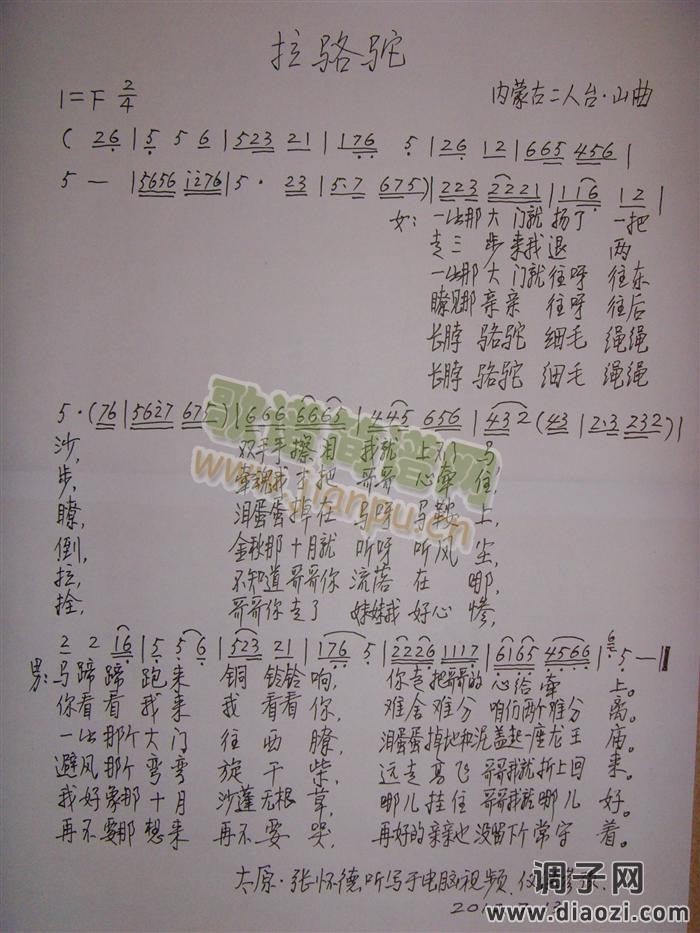 拉骆驼
1=F 2/4 内蒙古二人台·山曲
( 26 | 5 5 6 | 523 21 | 176 5 | 26 12 | 665 456 |
5 — | 5656 i276 | 5· 23 | 5·7 675 ) | 223 2221 | 116 12 |
女: 一出那大门就扬了一把
走三步来我退两
一出那大门就往呀往东
瞭见那亲亲往呀往后
长脖骆驼细毛绳绳
长脖骆驼细毛绳绳
5·(76 | 5627 675) | 666 6665 | 445 656 | 432 (43 | 2·3 232) |
沙, 双手手擦泪我就上不了马
步, 牵魂我才把哥哥心牵住,
瞭, 泪蛋蛋掉在马呀马鞍上,
倒, 金秋那十月就听呀听风尘,
拉, 不知道哥哥你流落在哪,
拴, 哥哥你走了妹妹我好心惨,
2 2 16 | 5 56 | 523 21 | 176 5 | 2226 1117 | 6165 4566 | 5 — ‖
男: 马蹄蹄跑来铜铃铃响, 你走把哥哥的心给牵上。
你看看我来我看看你, 难舍难分咱们两个难分离。
一出那个大门往西瞭, 泪蛋蛋掉地和泥盖起一座龙王庙。
避风那个弯弯旋干柴, 远走高飞哥哥我就折上回来。
我好象那十月沙蓬无根草, 哪儿挂住哥哥我就哪儿好。
再不要那想来再不要哭, 再好的亲亲也没留下个常守着。
太原·张怀德听写于电脑视频
歌谱简谱网
www.jianpu.cn
调子网
www.diaozi.com